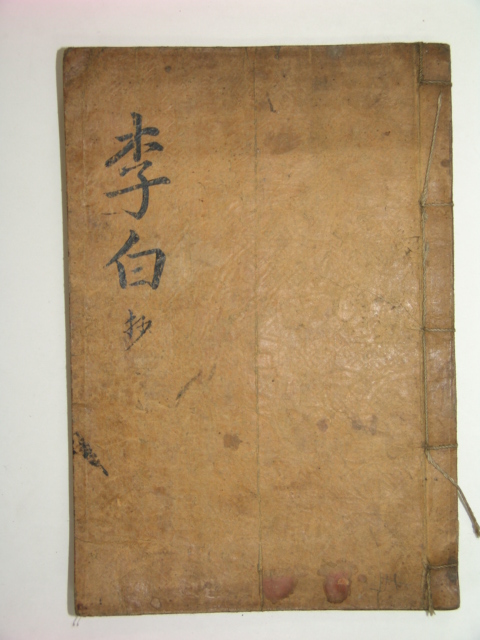 李白抄